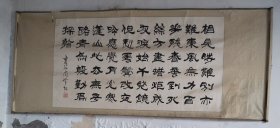 相見時難別亦
難東風無力百
花殘春蠶到死
絲方盡蠟炬成
灰淚始乾曉鏡
但愁雲鬢改夜
吟應覺月光寒
蓬山此去無多
路青鳥殷勤為
探看